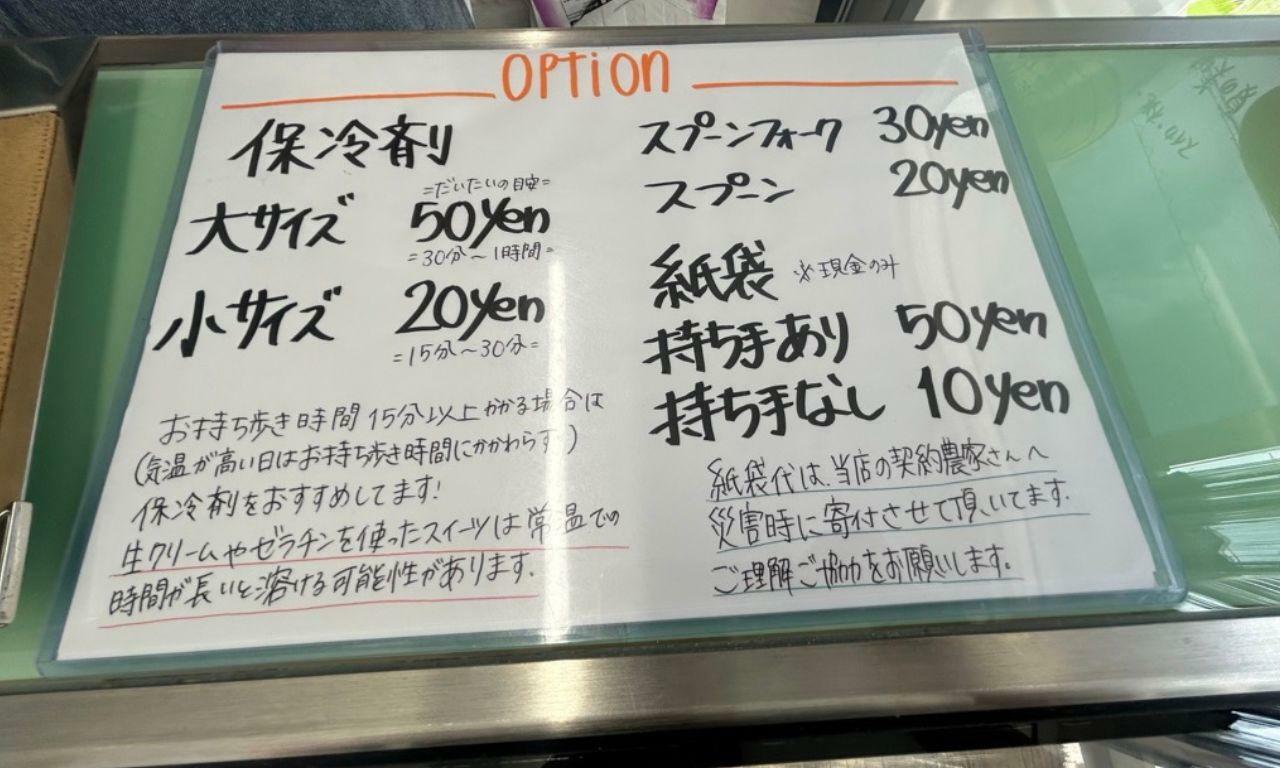 OPTION
保冷剤
=だいたいの目安=
大サイズ 50yen
=30分~1時間=
小サイズ 20yen
=15分~30分=
お持ち歩き時間15分以上かかる場合は
(気温が高い日はお持ち歩き時間にかかわらず)
保冷剤をおすすめしてます!
生クリームやゼラチンを使ったスイーツは常温での
時間が長いと溶ける可能性があります.
スプーンフォーク 30yen
スプーン 20yen
紙袋 ※現金のみ
持ち手あり 50yen
持ち手なし 10yen
紙袋代は、当店の契約農家さんへ
災害時に寄付させて頂いてます.
ご理解ご協力をお願いします。